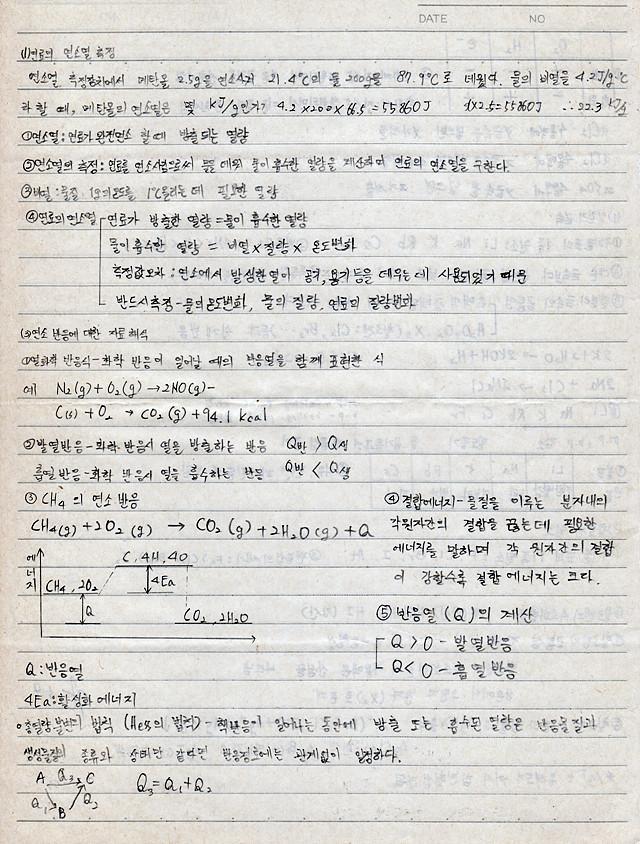 DATE NO
(1)연료의 연소열 측정
연소열 측정장치에서 메탄올 2.5g을 연소시켜 21.4℃의 물 200g을 87.9℃로 데웠다. 물의 비열을 4.2J/g·℃
라 할 때, 메탄올의 연소열은 몇 kJ/g인가? 4.2×200×66.5=55860J x×2.5=55860J ∴22.3 kJ/g
①연소열:연료가 완전연소 할 때 방출되는 열량
②연소열의 측정:연료를 연소시킴으로써 물을 데워 물이 흡수한 열량을 계산하여 연료의 연소열을 구한다.
③비열:물질 1g의 온도를 1℃올리는데 필요한 열량
④연료의 연소열 연료가 방출한 열량=물이 흡수한 열량
물이 흡수한 열량 = 비열×질량×온도변화
측정값오차:연소에서 발생한열이 공기,용기등을 데우는데 사용되었기 때문
반드시측정-물의온도변화, 물의 질량, 연료의 질량변화
(2)연소 반응에 대한 자료해석
①열화학 반응식-화학 반응이 일어날 때의 반응열을 함께 표현한 식
예 N₂(g)+O₂(g)→2NO(g)-
C(s)+O₂ → CO₂(g)+94.1 kcal
②발열반응-화학 반응시 열을 방출하는 반응 Q반 > Q생
흡열반응-화학 반응시 열을 흡수하는 반응 Q반 < Q생
③ CH₄의 연소 반응
CH₄(g)+2O₂(g) → CO₂(g)+2H₂O(g)+Q
에너지
C, 4H, 4O
CH₄, 2O₂
4Ea
Q
CO₂, 2H₂O
Q:반응열
4Ea:활성화에너지
④결합에너지-물질을 이루는 분자내의
각원자간의 결합을 끊는데 필요한
에너지를 말하며 각 원자간의 결합
이 강할수록 결합 에너지는 크다.
⑤ 반응열(Q)의 계산
Q>0-발열반응
Q<0-흡열반응
총열량불변의 법칙(Hess의 법칙)- 화학반응이 일어나는 동안에 방출 또는 흡수된 열량은 반응물질과
생성물질의 종류와 상태만 같다면 반응경로에는 관계없이 일정하다.
A Q₃ C
Q₁ B Q₂
Q₃=Q₁+Q₂